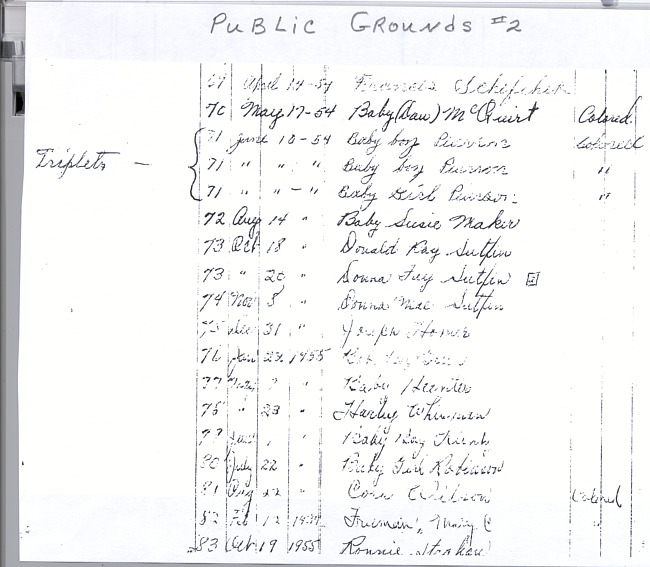 PUBLIC GROUNDS #2
69 April 14-54 Francis
70 May 17-54 Baby (Daw) McQuirt Colored
71 June 10-54 Baby boy Pierson Colored
Triplets - 71 " " " Baby boy Pierson "
71 " " - " Baby Girl Pierson "
72 Aug 14 " Baby Susie Maker
73 Oct 18 " Donald Ray Sutfin
73 " 20 " Donna Fay Sutfin
74 Nov 8 " Donna Mae Sutfin
75 Dec 31 " Joseph Homer
76 Jan 23 1955
77 " Baby Hunter
78 " 23 " Harley Whinman
79 " Baby Kay
80 July 22 " Baby Girl Robinson
81 Aug 22 " Cora Wilson Colored
82 Feb 12 Freeman, Mary C "
83 Oct 19 1955 Ronnie